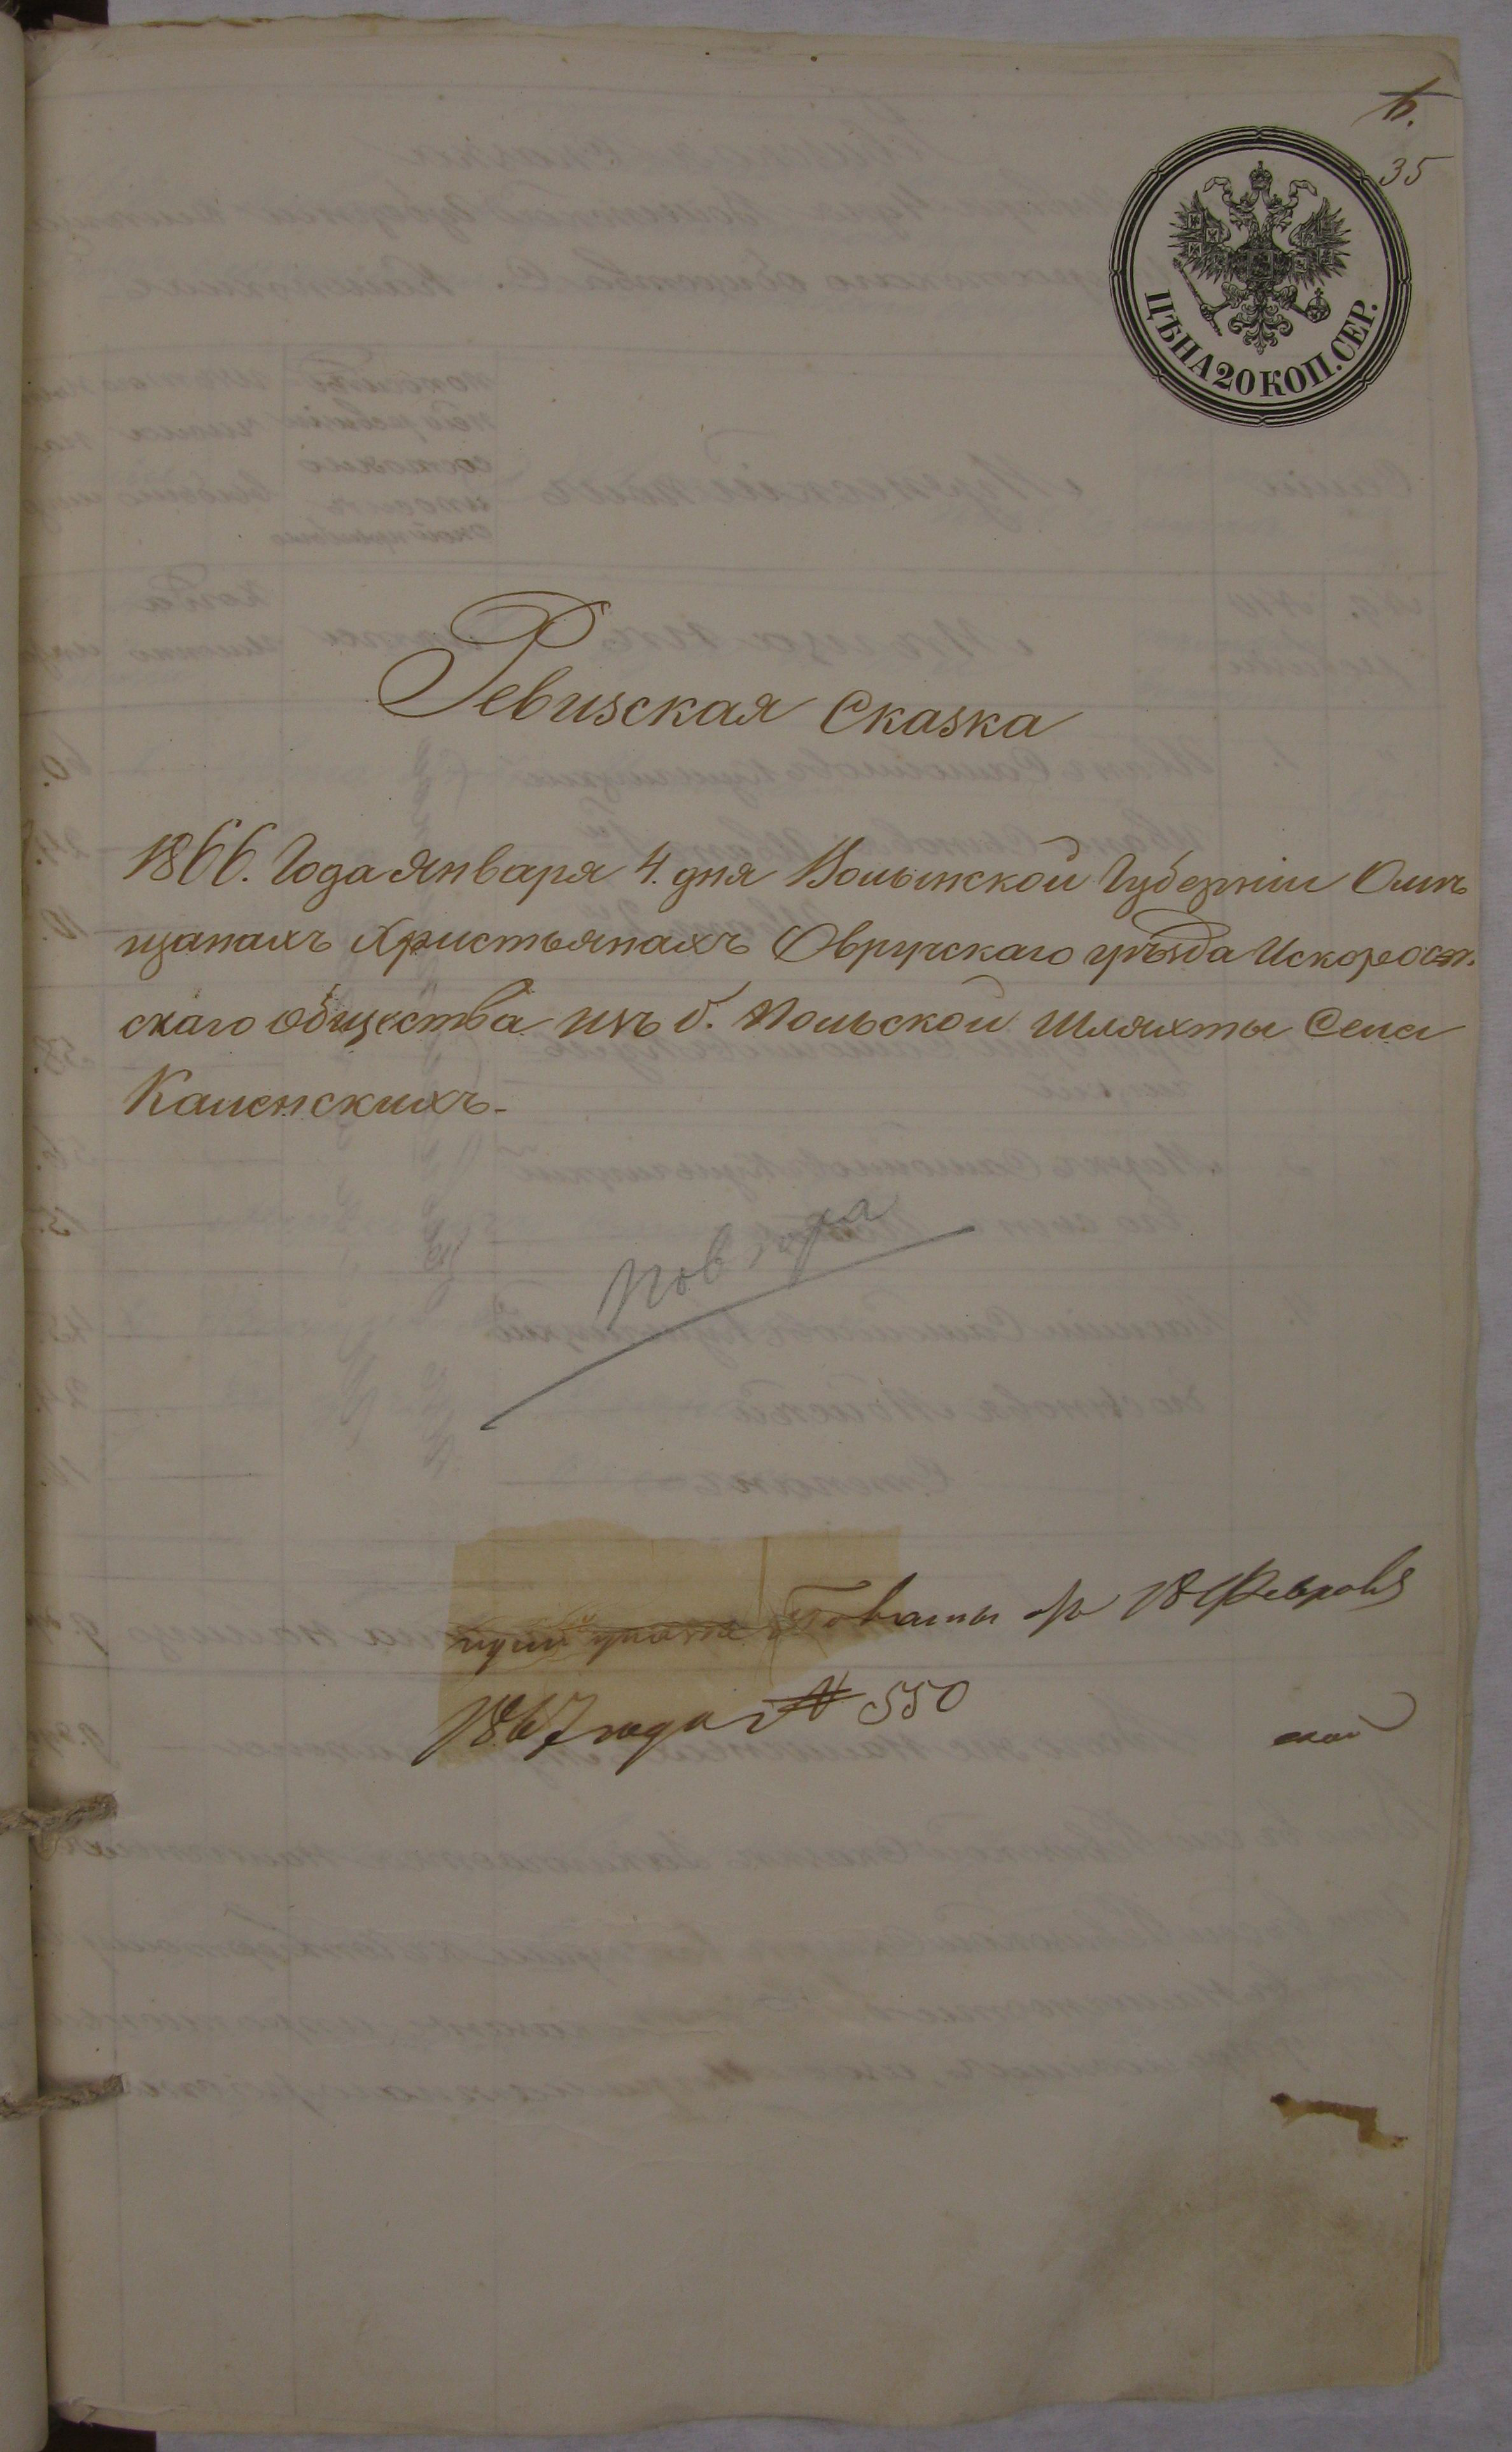 35
ЦѢНА 20 КОП. СЕР.
Ревизская Сказка
1866. Года Января 4. дня Волынской Губерніи О мѣ
щанахъ Христьянахъ Овручскаго уѣзда Искорост.
скаго общества изъ б. Польской Шляхты Села
Каменскихъ.
18 Февраля
1867 года № 550